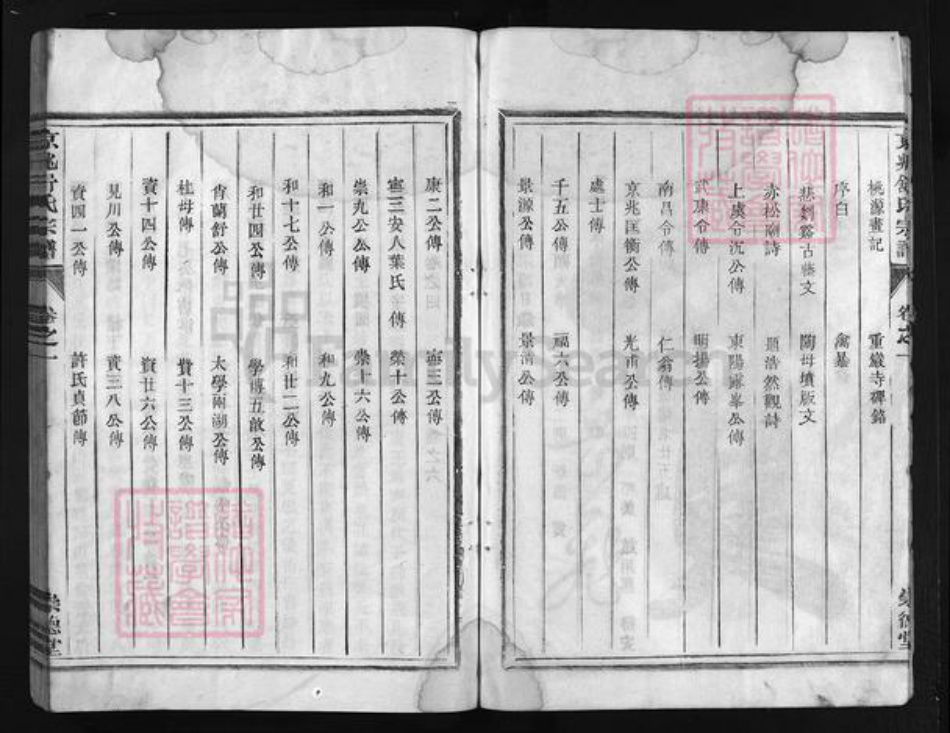 桃源畫記　重巖寺碑銘
序白　禽暴
悲剡谿古藤文　陶母墳版文
赤松廟詩　題浩然觀詩
上虞令沉公傳　東陽露峯公傳
武康令傳　明揚公傳
南昌令傳　仁翁傳
京兆匡衡公傳　光甫公傳
處士傳
千五公傳　福六公傳
景源公傳　景清公傳
康二公傳　寧三公傳
寧三安人葉氏傳　榮十公傳
崇九公公傳　崇十六公傳
和一公傳　和九公傳
和十七公傳　和廿二公傳
和廿四公傳　學博五𢾾公傳
肯蘭舒公傳　太學兩湖公傳
杜母傳　賁十三公傳
資十四公傳　資廿六公傳
見川公傳　資三八公傳
資四一公傳　許氏貞節傳
卷之一
FamilySearch